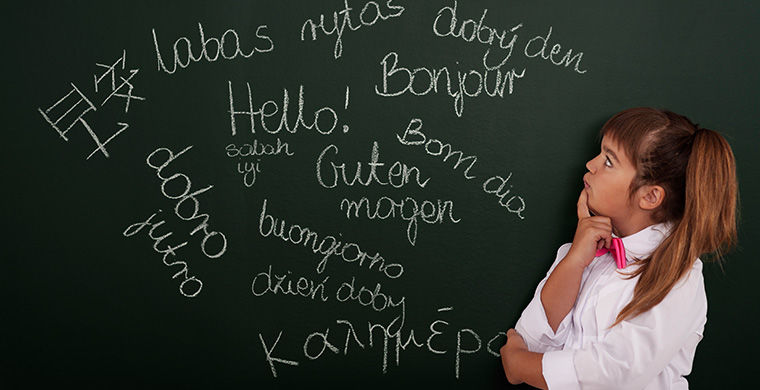 labas
rytas
dobrý den
Bonjour
Hello!
sabah
iyi
Bom dia
Guten
morgen
dobro
jutro
buongiorno
dzień dobry
καλημέρα